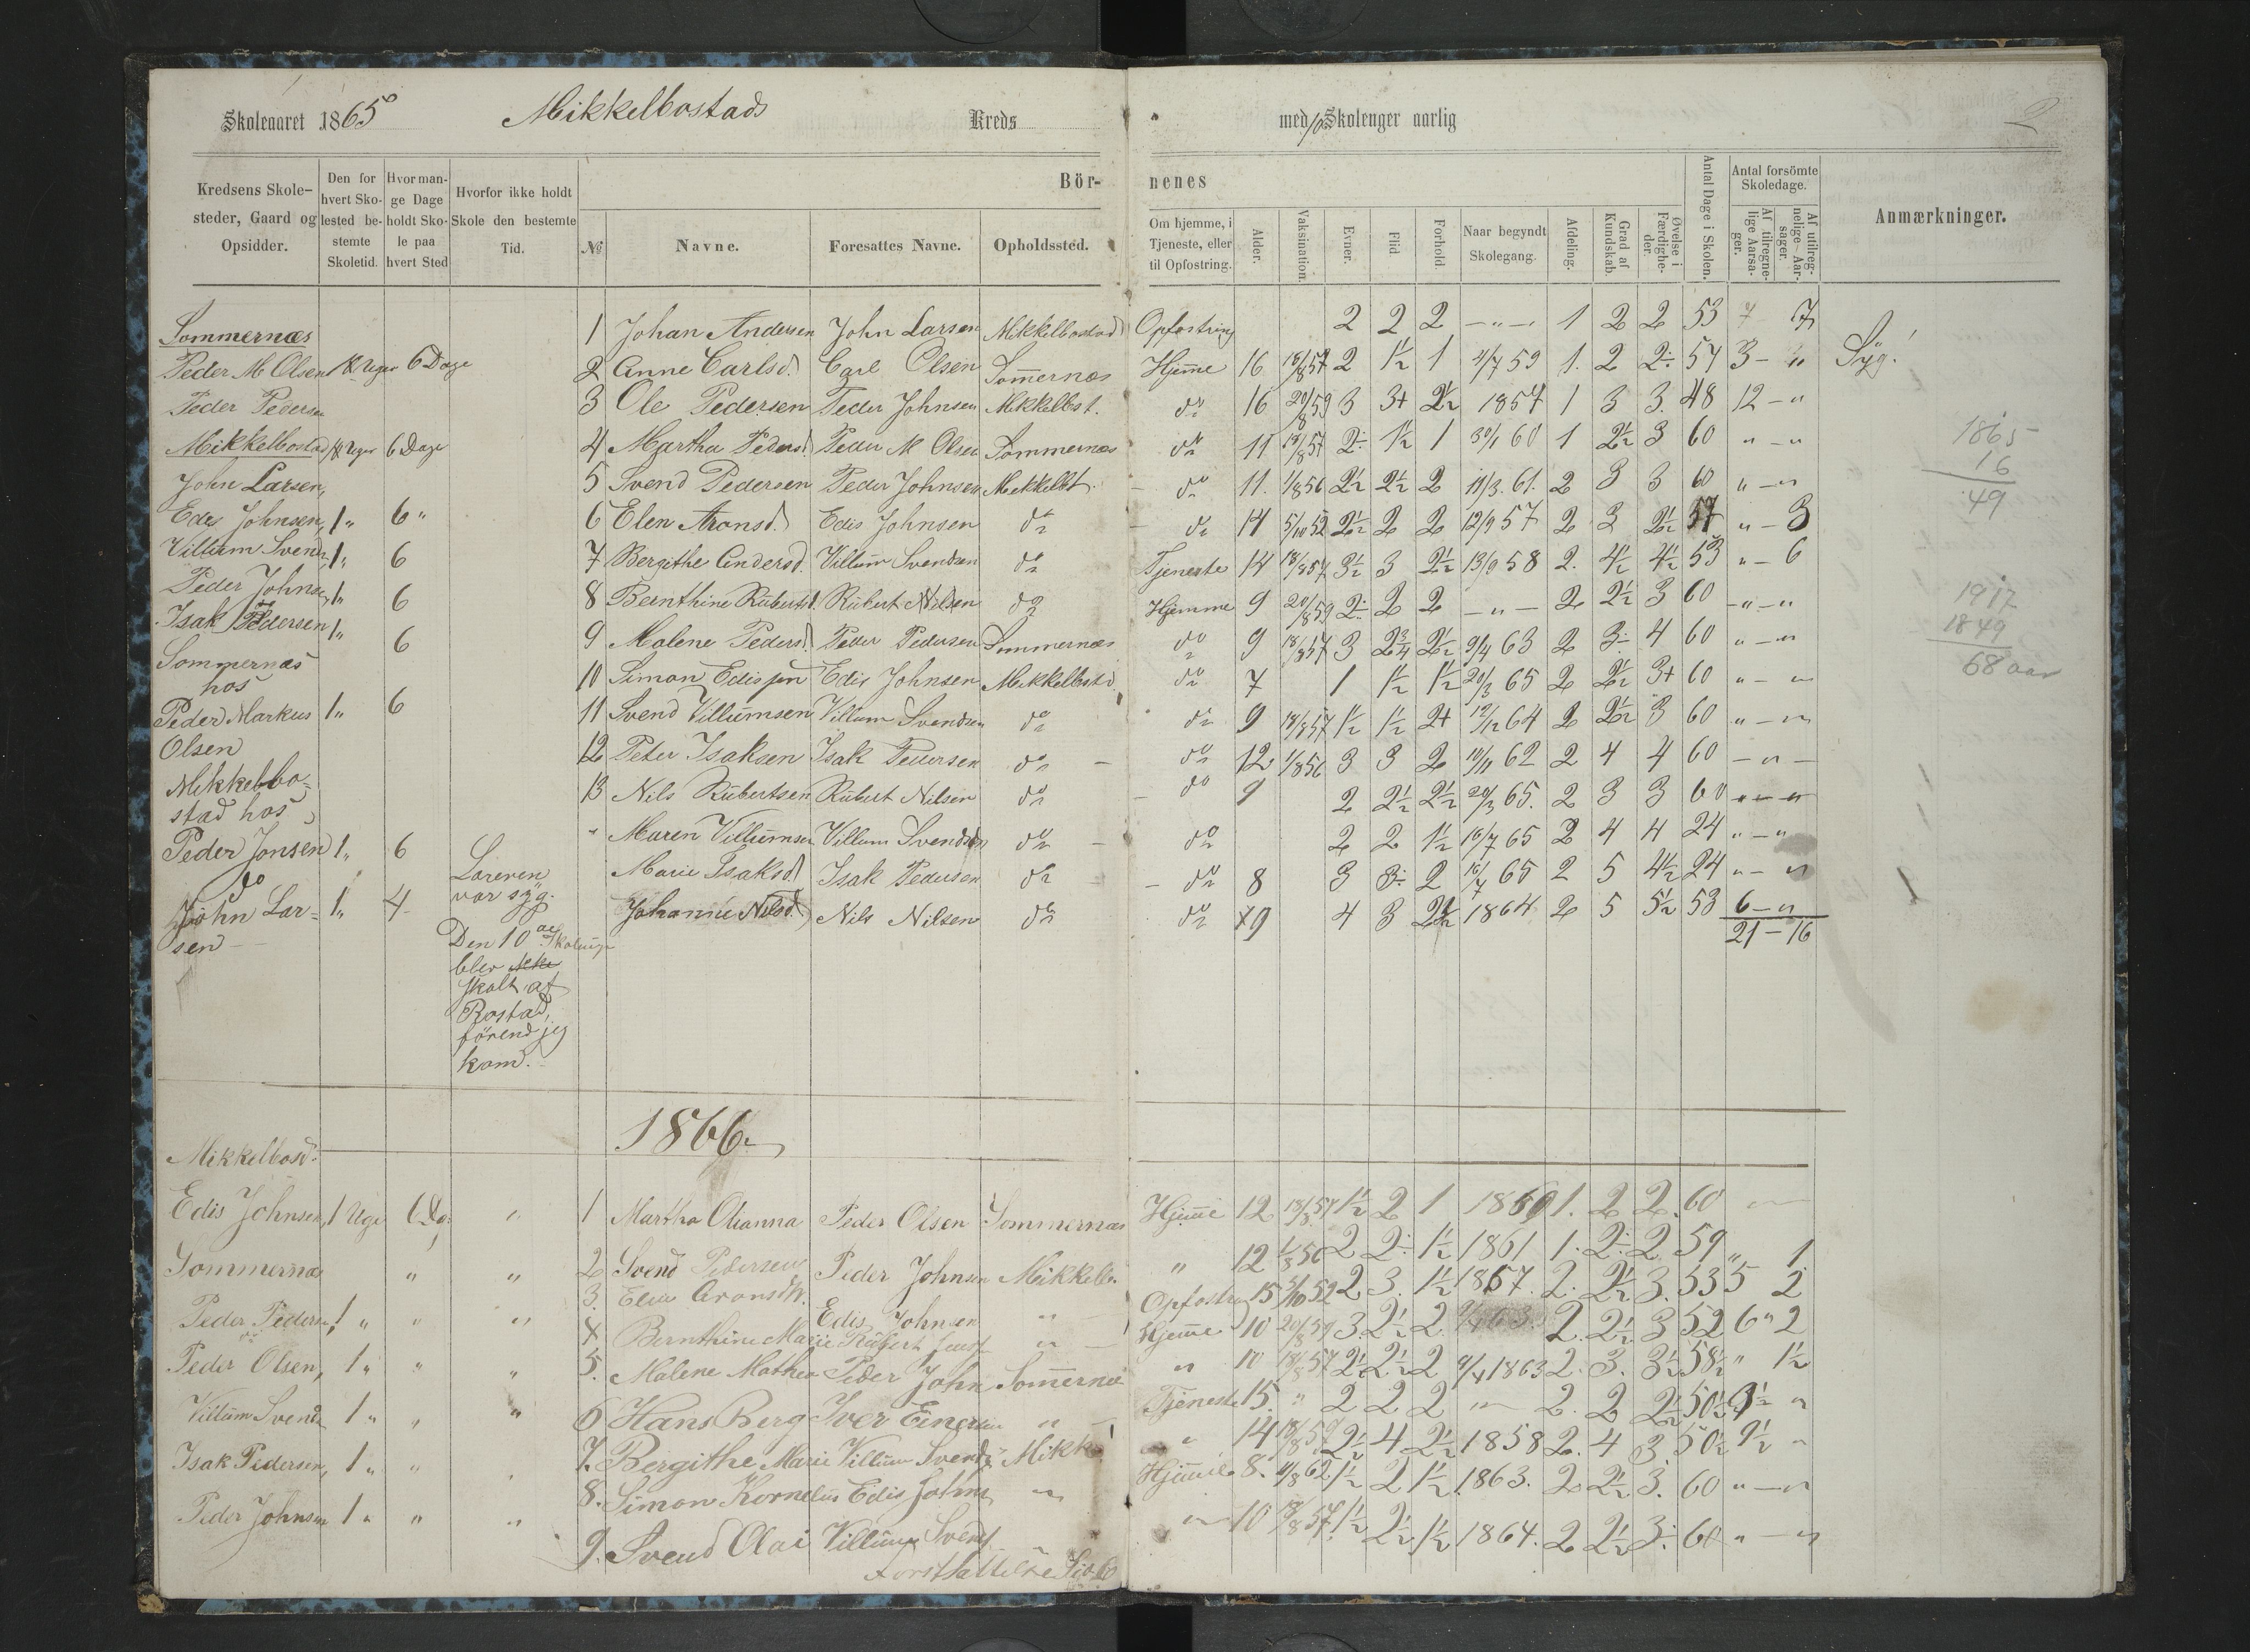 Skoleaaret 1865 Mikkelbostads Kreds med 10 Skoleuger aarlig 2
Kredsens Skolesteder, Gaard og Opsidder.
Den for hvert Skolested bestemte Skoletid.
Hvormange Dage holdt Skole paa hvert Sted
Hvorfor ikke holdt Skole den bestemte Tid.
Bör-
nenes
№ Navne. Foresattes Navne. Opholdssted.
Om hjemme, i Tjeneste, eller til Opfostring.
Alder. Vaksination. Evner. Flid Forhold.
Naar begyndt Skolegang.
Afdeling.
Grad af Kundskab.
Øvelse i Færdigheder.
Antal Dage i Skolen.
Antal forsömte Skoledage.
Af tilregnelige Aarsager.
Af utilregnelige Aarsager.
Anmærkninger.
Sommernæs
Peder M Olsen 6 Dage
Peder Pedersen
Mikkelbostad 6 Dage
John Larsen,
Edis Johnsen, 1 " 6 "
Villum Svends 1 " 6
Peder Johnsen 1 " 6
Isak Pedersen 1 " 6
Sommernæs
hos
Peder Markus 1 " 6
Olsen
Mikkelbo-
stad hos
Peder Jonsen 1 " 6
do
John Lar- 1 " 4
sen
Læreren
var syg.
Den 10de Skoleuge
blev
skolt af
Rostad,
förend jeg
kom.
1 Johan Andersen John Larsen Mikkelbostad Opfostring 2 2 2 — " — 1 2 2 53 7
2 Anne Carlsd. Carl Olsen Sommernæs Hjemme 16 18/8 57 2 1½ 1 4/7 59 1. 2 2÷ 57 3 — " Syg!
3 Ole Pedersen Peder Johnsen Mikkelbst. do 16 20/8 59 3 3+ 2½ 1857 1 3 3. 48 12 — "
4 Martha Pedersd. Peder M Olsen Sommernæs do 11 18/8 57 2÷ 1½ 1 30/1 60 1 2½ 3 60 " — "
5 Svend Pedersen Peder Johnsen Mikkelbt. do 11. 1/8 56 2½ 2½ 2 11/3. 61. 2 3 3 60 " — "
6 Elen Aronsd. Edis Johnsen do do 14 5/10 52 2½ 2 2 12/9 57 2 3 2½ 57 " — 3
7 Bergithe Andersd. Villum Svendsen do Tjeneste 14 18/8 57 3½ 3 2½ 13/9 58 2. 4½ 4½ 53 " — 6
8 Bernthine Rubertsd. Rubert Nilsen do Hjemme 9 20/8 59 2÷ 2 2 — " — 2 2½ 3 60 — " — "
9 Malene Pedersd. Peder Pedersen Sommernæs do 9 18/8 57 3 2¾ 2½ 9/4 63 2 3÷ 4 60 " — "
10 Simon Edissen Edis Johnsen Mikkelbstd do 7 1 1½ 1½ 20/3 65 2 2½ 3+ 60 " — "
11 Svend Villumsen Villum Svendsen do do 9 18/8 57 1½ 1½ 2+ 12/12 64 2 2½ 3 60 " — "
12 Peter Isaksen Isak Pedersen do do 12 1/8 56 3 3 2 10/11 62 2 4 4 60 — " —
13 Nils Rubertsen Rubert Nilsen do do 9 2 2½ 2½ 20/3 65. 2 3 3 60 " — "
" Maren Villumsen Villum Svendsen do do 2 2 1½ 16/7 65 2 4 4 24 " — "
Marie Isaksd. Isak Pedersen do do 8 3 3÷ 2 16/7 65 2 5 4½ 24 " — "
Johanne Nilsd. Nils Nilsen do do 9 4 3 2½ 1864 2 5 5½ 53 6 — "
21 — 16
1865
16
49
1917
1849
68 aar
1866
Mikkelbosd.
Edis Johnsen, 1 Uge 6 Da: "
Sommernæs " "
Peder Pedersen, 1 " " "
Peder Olsen, 1 " " "
Villum Svends 1 " " "
Isak Pedersen, 1 " "
Peder Johnsen 1 " " "
1 Martha Olianna Peder Olsen Sommernæs Hjemme 12 18/8 57 1½ 2 1 1860 1. 2 2. 60
2 Svend Pedersen Peder Johnsen Mikkelb. " 12 1/8 56 2 2÷ 1½ 1861 1. 2÷ 2 59 " 1
3. Elen Edis Johnsen " Opfostrng 15 5/10 52 2 3. 1½ 1857. 2. 2½ 3. 53 5 2
4 Bernthine Marie Rubert " Hjemme 10 20/8 59 3 2½ 2 2. 2½ 3 52 6 " 2
5. Malene Mathea Peder John Sommernæs " 10 18/8 57 2½ 2½ 2 9/4 1863 2. 3. 3½ 58½ " 1½
6 Hans Berg Iver Einersen " Tjeneste 15. " 2 2 2 " 2. 2 2½ 50½ 9½ "
7. Bergithe Marie Villum Svends Mikk. " 14 18/8 57 2½ 4 2½ 1858 2. 4 3. 50½ 9½ "
8. Simon Kornelius Edis Johns " Hjemme 8. 11/8 62. 1½ 2 1½ 1863. 2 2½ 3. 60 " — "
9. Svend Olai Villum Svends " 10 18/8 57 1½ 2½ 1½ 1864. 2 2½ 3÷ 60 " — "
Forsthattelse